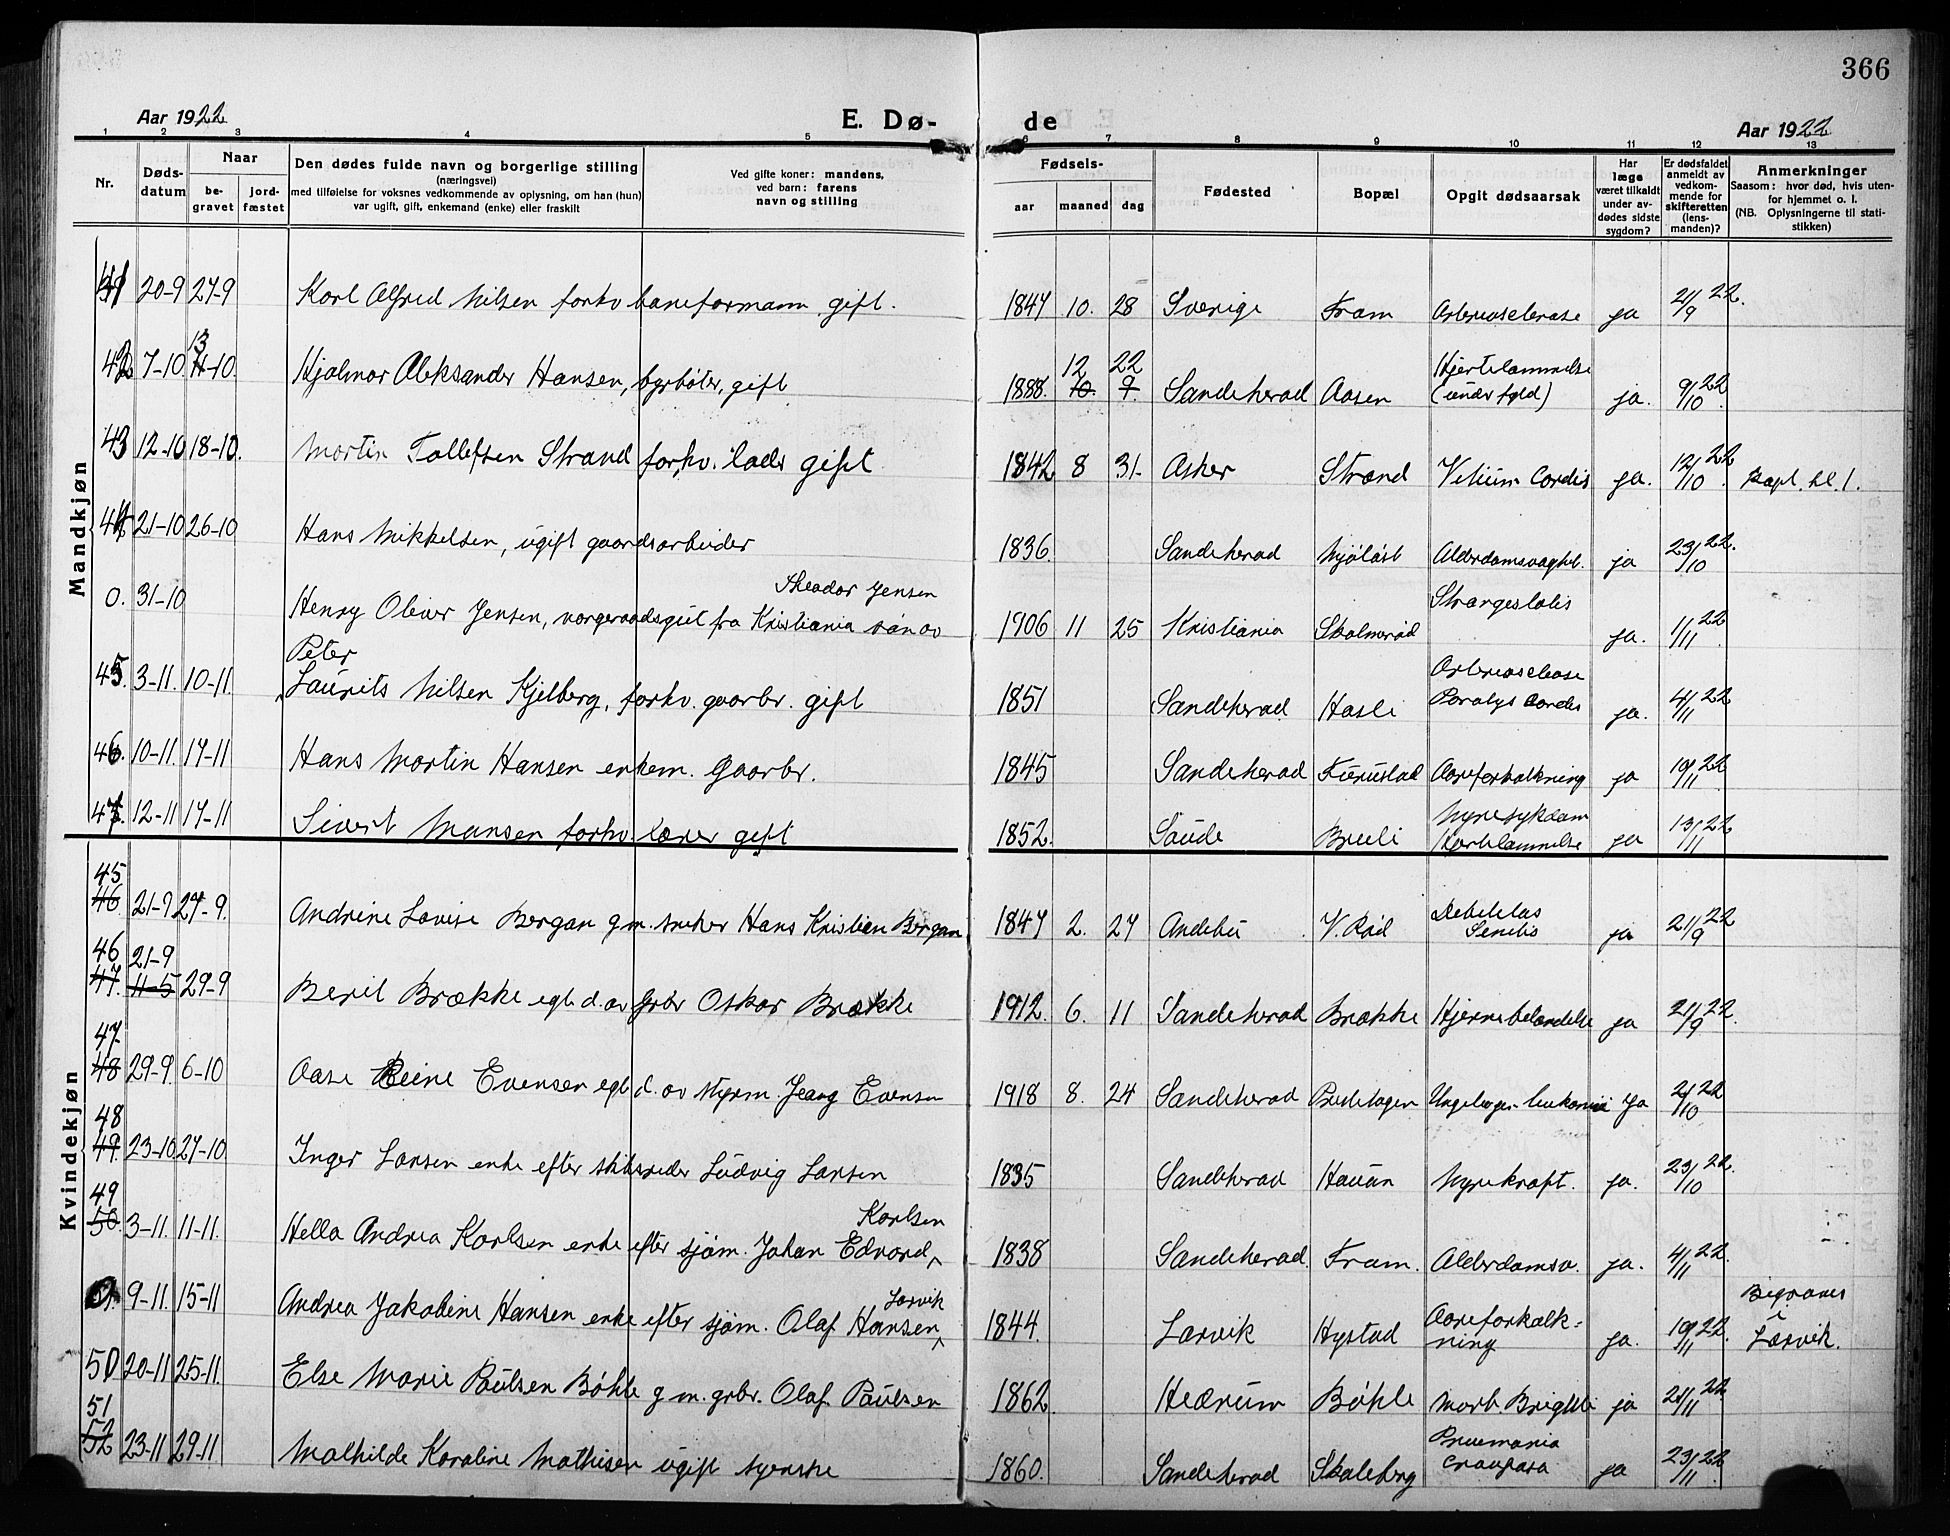 366
Aar 1922 E. Dø- de Aar 1922
1 2 3 4 5 6 7 8 9 10 11 12 13
Nr. Døds-datum Naar be-gravet jord-fæstet Den dødes fulde navn og borgerlige stilling (næringsvei) med tilføielse for voksnes vedkommende av oplysning, om han (hun) var ugift, gift, enkemand (enke) eller fraskilt Ved gifte koner: mandens, ved barn: farens navn og stilling Fødsels- aar maaned dag Fødested Bopæl Opgit dødsaarsak Har læge været tilkaldt under av-dødes sidste sygdom? Er dødsfaldet anmeldt av vedkom-mende for skifteretten (lens-manden)? Anmerkninger Saasom: hvor død, hvis uten-for hjemmet o. l. (NB. Oplysningerne til stati-stikken)
Mandkjøn
41 20-9 27-9 Karl Alfred Nilsen forhv baneformann gift. 1847 10. 28 Sverige Fram Arteriosclerose ja 21/9 22.
42 7-10 13 11-10. Hjalmar Aleksander Hansen, fyrbøter, gift 1888. 12 10. 22 9. Sandeherad Aasen Hjertelammelse (under fgld) ja. 9/10 22.
43 12-10 18-10. Martin Tollefsen Strand forhv. lods gift 1842 8 31- Asker Strand Vitium Cordis ja. 12/10 22. Kapt. kl. 1.
44 21-10 26-10 Hans Mikkelsen, ugift gaardsarbeider 1836. Sandeherad Mjøløst Alderdomsvaghet. ja 23/10 22.
0. 31-10 Henry Oliver Jensen, vergeraadsgut fra Kristiania søn av Theodor Jensen 1906 11 25 Kristiania Skolmerød Strangeslatis ja. 1/11 22.
45. 3-11. 10-11. Peter Laurits Nilsen Kjelberg, forhv. gaarbr. gift 1851 Sandeherad Hasli Arteriosclerose Paralys Cordis ja. 4/11 22
46. 10-11. 17-11 Hans Martin Hansen enkem. Gaarbr. 1845 Sandeherad Furustad Aareforkalkning ja 10/11 22.
47. 12-11 17-11 Sivert Mansen forhv. lærer gift 1852. Saude Breili Nyresykdom Hjertelammelse ja 13/11 22
Kvindekjøn
45 46. 21-9 27-9. Andrine Lovise Bergan g.m. sneker Hans Kristian Bergan 1847 2. 27 Andebu V. Rød Debilitas Senilis ja 21/9 22
46 47. 21-9 11-5 29-9 Beril Brække egt. d. av Grbr Oskar Brække 1912. 6. 11 Sandeherad Brække Hjernebetændelse ja 21/9 22.
47. 48 29-9. 6-10 Aase Reine Evensen egt d. av styrm. Jeang Evensen 1918 8. 24 Sandeherad Preståsen leukæmi ja 2/10 22
48 49. 23-10. 27-10. Inger Larsen enke efter skibsreder Ludvig Larsen 1835 Sandeherad Hauan Nyrekræft. ja. 23/10 22.
49 50. 3-11. 11-11. Hella Andrea Karlsen enke efter sjøm. Johan Edvard Karlsen 1838 Sandeherad. Fram. Alderdomsv. ja. 4/11 22.
0. 9-11. 15-11 Andrea Jakobine Hansen enke efter sjøm. Olaf Hansen Larvik 1844. Larvik Hystad Aareforkalk-ning ja. 10/11 22. Begraves i Larvik.
50 20-11 25-11. Else Marie Paulsen Bøhle g.m. grbr. Olaf Paulsen 1862 Hedrum Bøhle Morb. Brightii ja 21/11 22
51 52 23-11 29-11 Mathilde Karoline Mathisen ugift syerske 1860. Sandeherad Skaleberg Pneumonia crouposa ja 23/11 22.